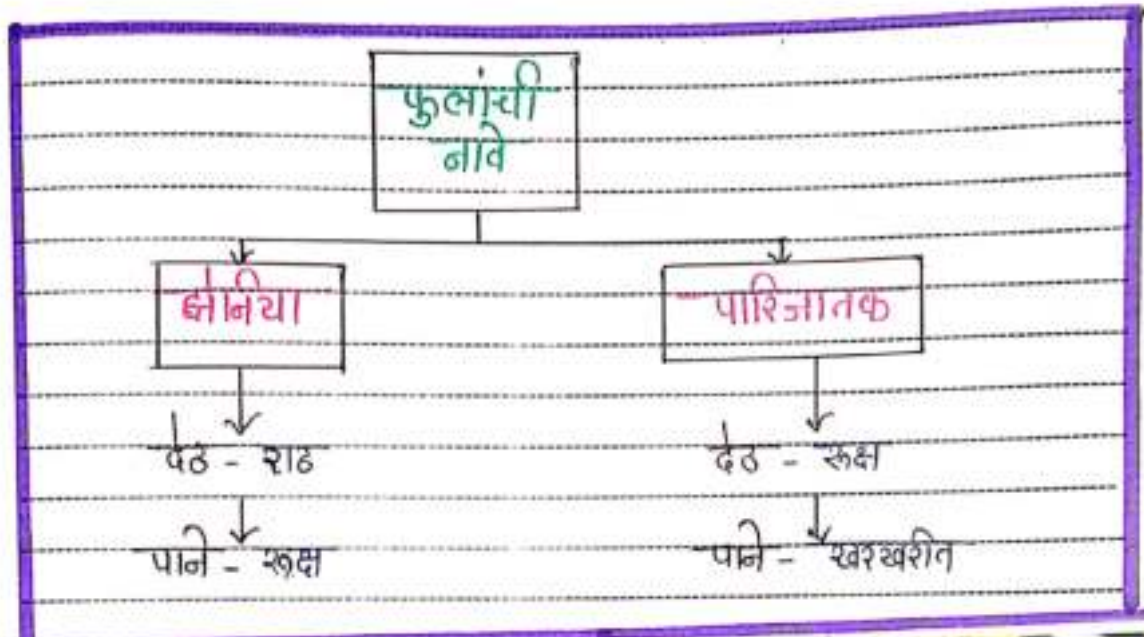 फुलांची
नावे
झेनिया
पारिजातक
देठ - राठ
देठ - रूक्ष
पाने - रूक्ष
पाने - खरखरीत